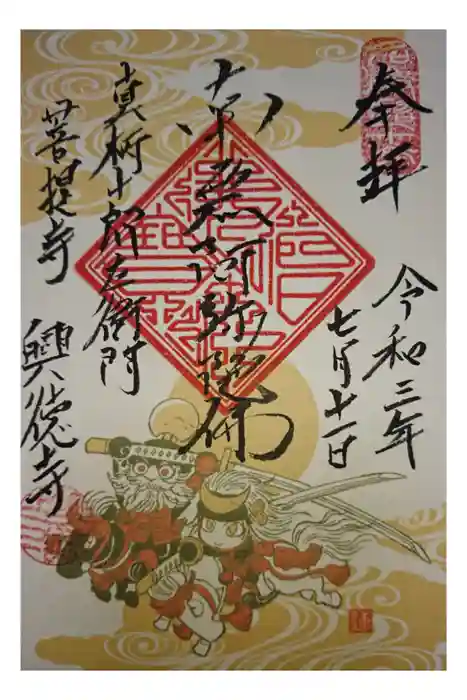 奉拝
令和三年
七月十一日
南無阿弥陀佛
真柄十郎左衛門
菩提寺
興徳寺